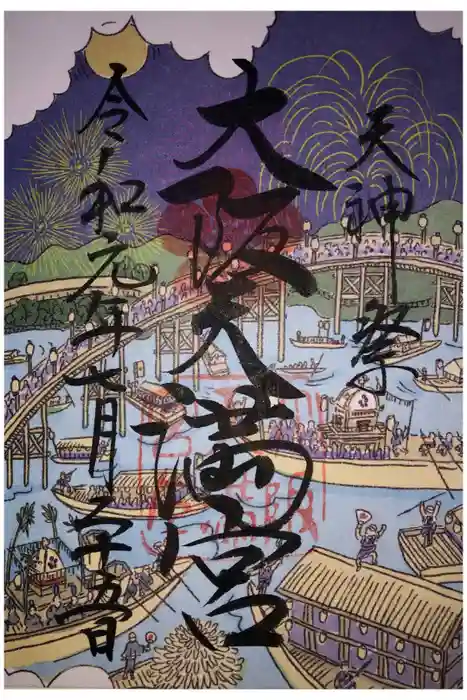 天神祭
大阪天満宮
令和元年七月二十五日